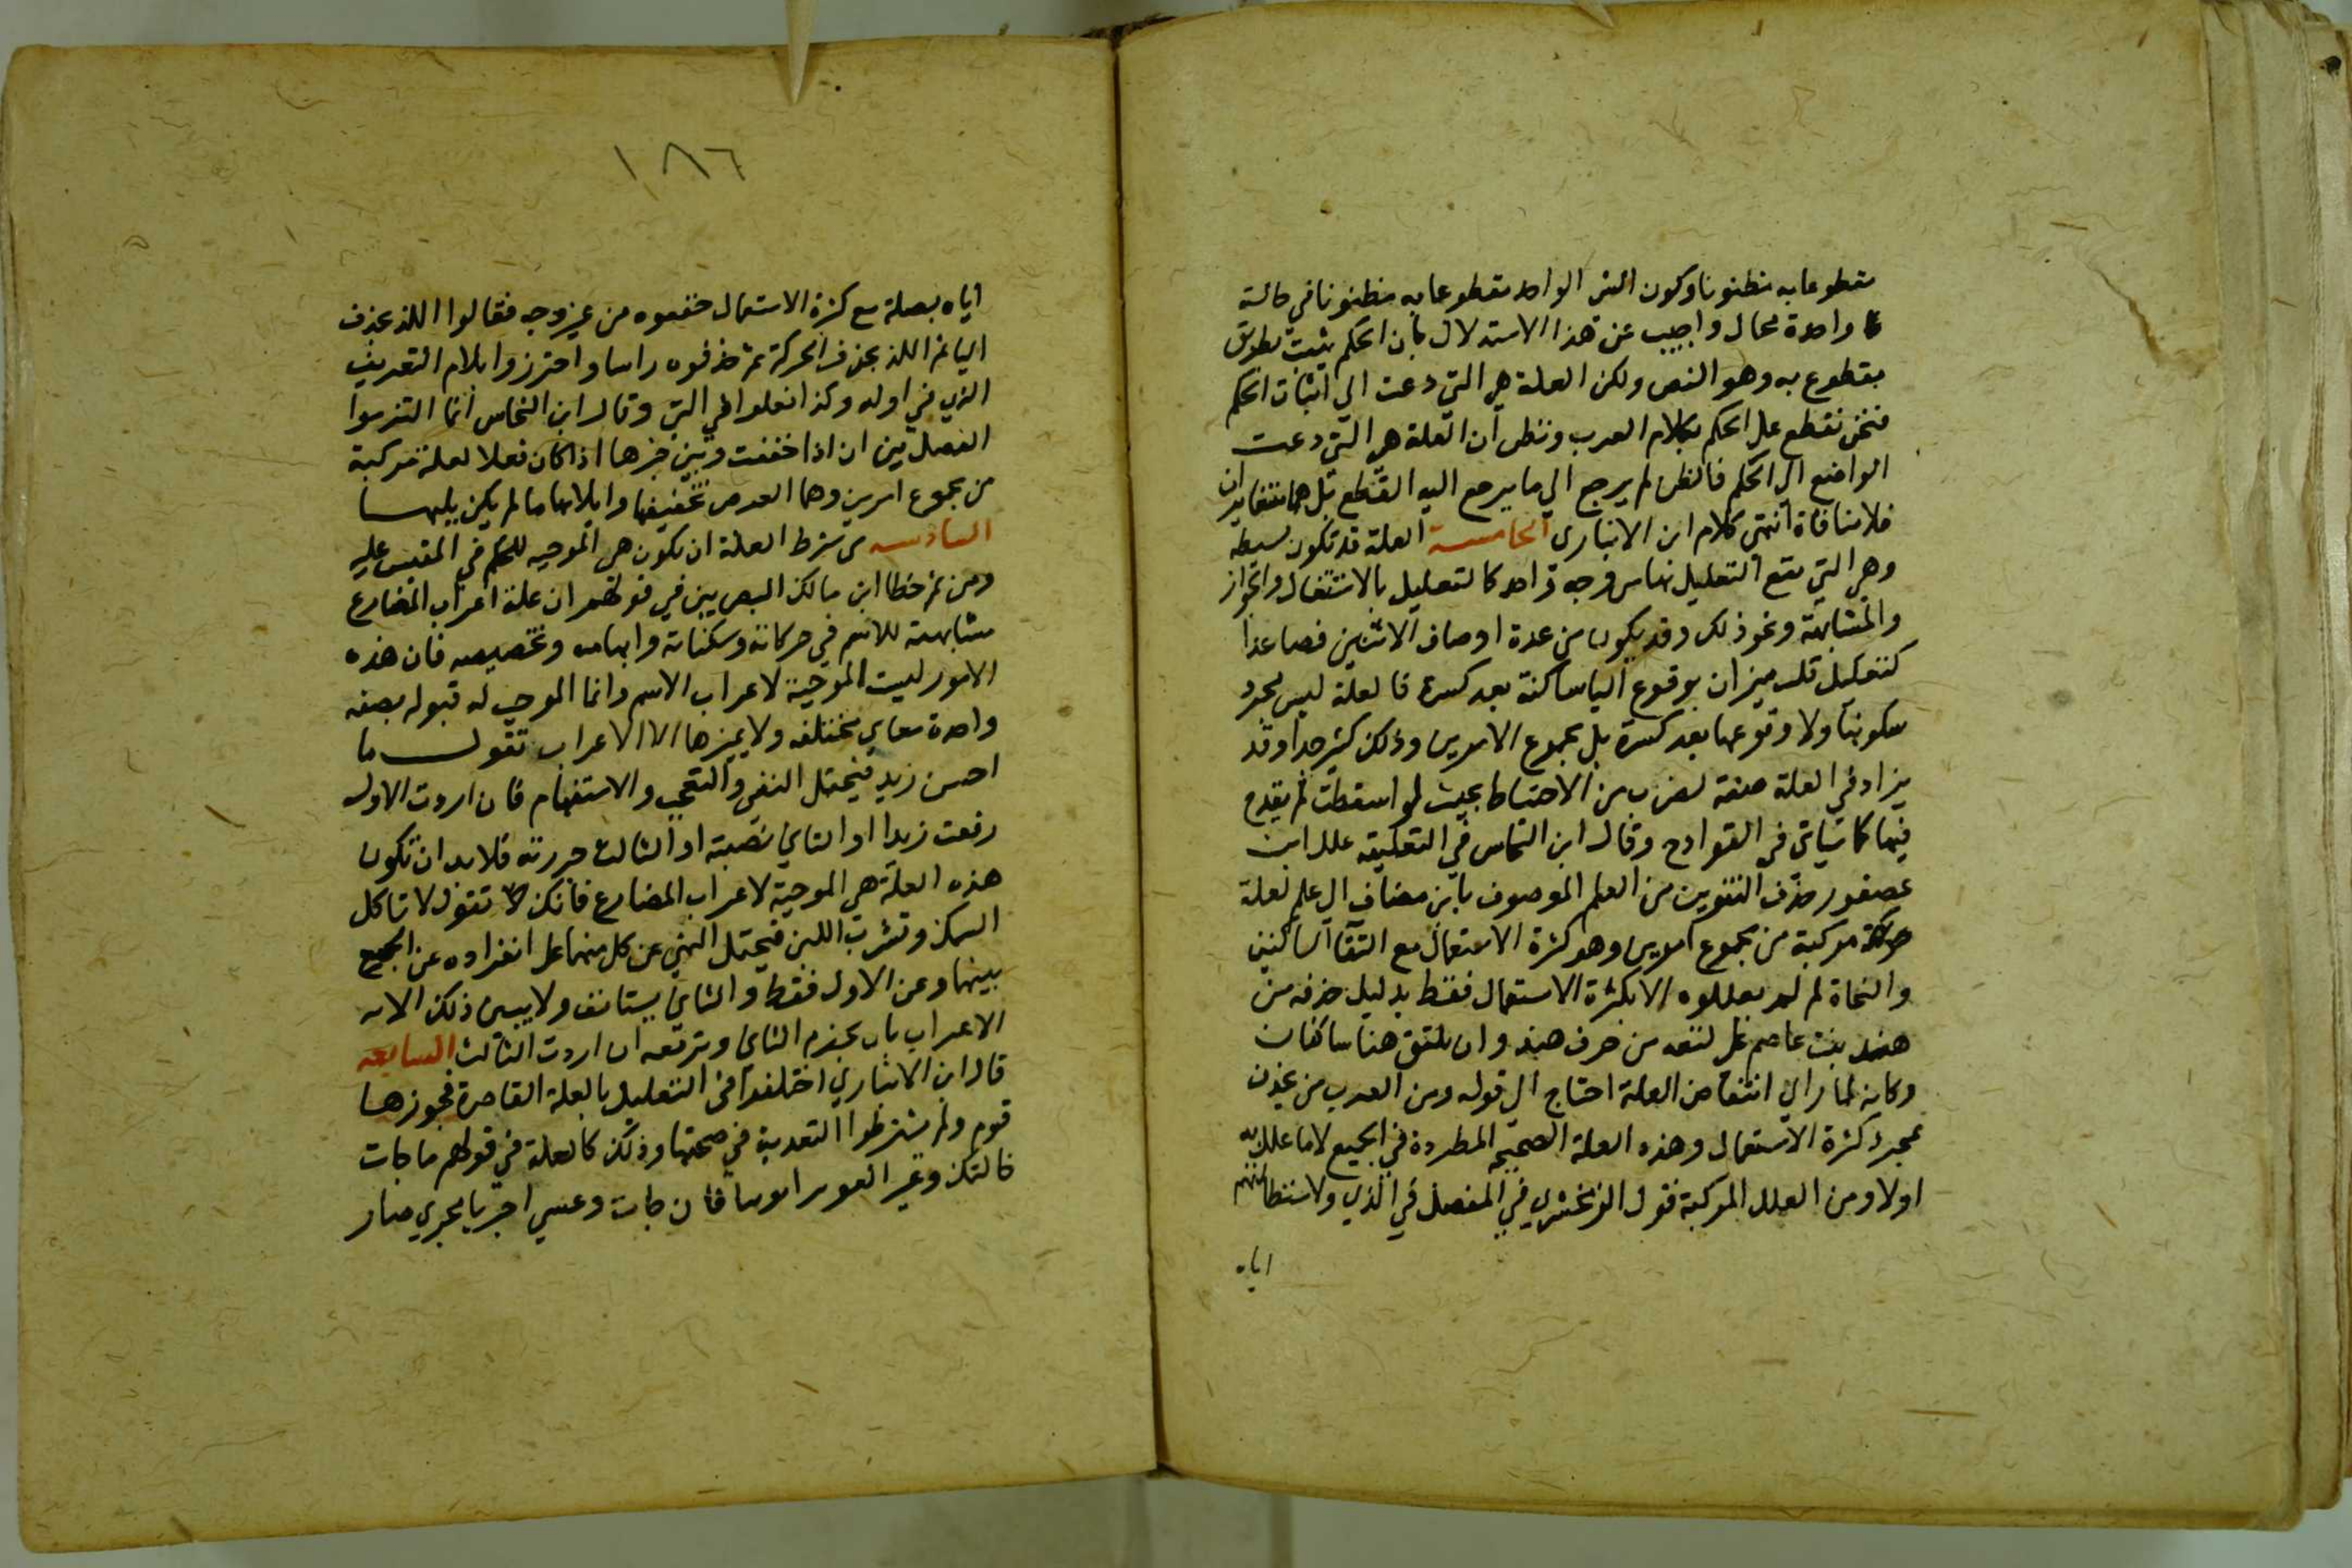 مقطوعا به مظنونا وكون الشى الواحد مقطوعا به مظنونا في حالة
واحدة محال واجيب عن هذا الاستدلال بان الحكم يثبت بطريق
مقطوع به وهو النص ولكن العلة هي التي دعت الي اثبات الحكم
فنحن نقطع على الحكم بكلام العرب ونظن ان العلة هي التي دعت
الواضع الى الحكم فالظن لم يرجع الي ما يرجع اليه القطع بل هما متغايران
فلا منافاة انتهى كلام ابن الانبارى الخامسة العلة قد تكون بسيطه
وهي التي يقع التعليل بها من وجه واحد كالتعليل بالاستثقال والجوار
والمشابهة ونحو ذلك وقد يكون من عدة اوصاف اثنين فصاعدا
كتعليل قلب ميزان بوقوع الياساكنة بعد كسرة فالعلة ليس مجرد
سكونها ولا وقوعها بعد كسرة بل مجموع الامرين وذلك كثير جدا وقد
يزاد في العلة صفة لضرب من الاحتياط بحيث لو اسقطت لم يقدح
فيها كما سياتى في القوادح وقال ابن النحاس في التعليقه علل ابن
عصفور حذف التنوين من العلم الموصوف بابن مضاف الى علم لعلة
مركبة من مجموع امرين وهو كثرة الاستعمال مع التقا الساكنين
والنحاة لم يعللوه الا بكثرة الاستعمال فقط بدليل حذفه من
هند بنت عاصم على لغة من صرف هند وان لم يلتق هنا ساكنان
وكانه لما راى انتقاض العلة احتاج الى قوله ومن العرب من يحذف
لمجرد كثرة الاستعمال وهذه العلة الصحيحة المطردة في الجميع لا ما علل به
اولا ومن العلل المركبة قول الزمخشري في المفصل في الذي ولاستطالتهم
اياه
١٨٦
اياه بصلة مع كثرة الاستعمال خففوه من غير وجه فقالوا اللذ بحذف
اليا ثم اللذ بحذف الحركة ثم حذفوه راسا واحتزوا بلام التعريف
الذي في اوله وكذا فعلوا في التي وقال ابن النحاس انما التزموا
الفصل بين ان اذا خففت وبين خبرها اذا كان فعلا لعلة مركبة
من مجموع امرين وهما العوض من تخفيفها وايلاءها ما لم يكن يليها
السادسه من شرط العلة ان تكون هي الموجبه للحكم في المقيس عليه
ومن ثم خطا ابن مالك البصريين في قولهم ان علة اعراب المضارع
مشابهته للاسم في حركاته وسكناته وابهامه وتخصيصه فان هذه
الامور ليست الموجبة لاعراب الاسم وانما الموجب له قبوله بصيغه
واحدة معاني مختلفه ولا يميزها الا الاعراب تقول ما
احسن زيد فيحتمل النفي والتعجب والاستفهام فان اردت الاول
رفعت زيدا او الثاني نصبته او الثالث جررته فلابد ان تكون
هذه العلة هي الموجبة لاعراب المضارع فانك تقول لا تاكل
السمك وتشرب اللبن فيحتمل النهي عن كل منهما على انفراده وعن الجمع
بينهما وعن الاول فقط والثاني مستانف ولا يبين ذلك الا
الاعراب بان تجزم الثاني وترفعه ان اردت الثالث السابعه
قال ابن الانباري اختلفوا في التعليل بالعلة القاصرة فجوزها
قوم ولم يشترطوا التعدية في صحتها وذلك كالعلة في قولهم ما جات
حاجتك وعسى الغوير ابوسا فان جات وعسي اجريا مجري صار